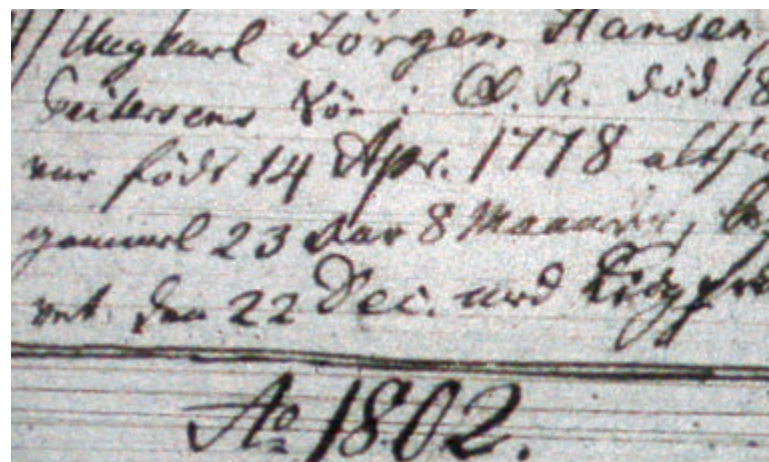 Ungkarl Jörgen Hansen,
Søn i Ø. R. død 18
var født 14 Apr. 1778 altsaa
gammel 23 Aar 8 Maaneder, beg
vet den 22 Dec. med
Ao 1802.